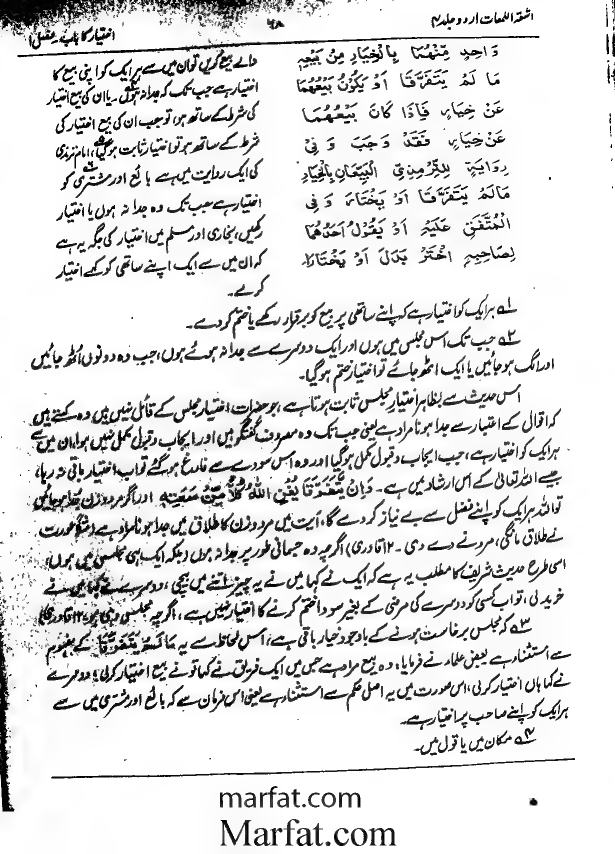 اشعۃ اللمعات اردو جلد ۴
۶۸
اختیار کا باب، فصل ۱
وَاحِدٍ مِّنْهُمَا بِالْخِيَارِ مِنْ بَيْعِهٖ
مَا لَمْ يَتَفَرَّقَا اَوْ يَكُوْنُ بَيْعُهُمَا
عَنْ خِيَارٍ فَاِذَا كَانَ بَيْعُهُمَا
عَنْ خِيَارٍ فَقَدْ وَجَبَ وَ فِيْ
رِوَايَةٍ لِلتِّرْمِذِيِّ الْبَيِّعَانِ بِالْخِيَارِ
مَا لَمْ يَتَفَرَّقَا اَوْ يَخْتَارَا وَ فِي
الْمُتَّفَقِ عَلَيْهِ اَوْ يَقُوْلُ اَحَدُهُمَا
لِصَاحِبِهٖ اخْتَرْ بَدَلَ اَوْ يَخْتَارَا
والے بیع کریں تو ان میں سے ہر ایک کو اپنی بیع کا
اختیار ہے جب تک کہ جدا نہ ہوں یا ان کی بیع اختیار
کی شرط کے ساتھ ہو، تو جب ان کی بیع اختیار کی
شرط کے ساتھ ہو تو اختیار ثابت ہو گیا، امام ترمذی
کی ایک روایت میں ہے بائع اور مشتری کو
اختیار ہے جب تک وہ جدا نہ ہوں یا اختیار
رکھیں، بخاری اور مسلم میں اختیار کی جگہ یہ ہے
کہ ان میں سے ایک اپنے ساتھی کو کہے اختیار
کر لے۔
۱ے ہر ایک کو اختیار ہے کہ اپنے ساتھی پر بیع کو برقرار رکھے یا ختم کر دے۔
۲ے جب تک اس مجلس میں ہوں اور ایک دوسرے سے جدا نہ ہوئے ہوں، جب وہ دونوں اٹھ جائیں
اور الگ ہو جائیں یا ایک اٹھ جائے تو اختیار ختم ہو گیا۔
اس حدیث سے بظاہر اختیار مجلس ثابت ہوتا ہے، جو حضرات اختیار مجلس کے قائل نہیں ہیں وہ کہتے ہیں
کہ اقوال کے اعتبار سے جدا ہونا مراد ہے یعنی جب تک وہ مصروف گفتگو ہیں اور ایجاب و قبول مکمل نہیں ہوا، ان میں سے
ہر ایک کو اختیار ہے، جب ایجاب و قبول مکمل ہو گیا اور وہ اس سودے سے فارغ ہو گئے تو اب اختیار باقی نہ رہا،
جیسے اللہ تعالیٰ کے اس ارشاد میں ہے۔ وَاِنْ يَّتَفَرَّقَا يُغْنِ اللّٰهُ كُلًّا مِّنْ سَعَتِهٖ اور اگر مرد و زن جدا ہو جائیں
تو اللہ ہر ایک کو اپنے فضل سے بے نیاز کر دے گا، آیت میں مرد و زن کا طلاق میں جدا ہونا مراد ہے (مثلاً عورت
نے طلاق مانگی، مرد نے دے دی۔ ۱۲ قادری) اگرچہ وہ جسمانی طور پر جدا نہ ہوں (بلکہ ایک ہی مجلس میں ہوں)
اسی طرح حدیث شریف کا مطلب یہ ہے کہ ایک نے کہا میں نے یہ چیز اتنے میں بیچی، دوسرے نے کہا میں نے
خرید لی، تو اب کسی کو دوسرے کی مرضی کے بغیر سودا ختم کرنے کا اختیار نہیں ہے، اگرچہ مجلس وہی ہو، ۱۲ قادری)
۳ے کہ مجلس برخاست ہونے کے باوجود خیار باقی ہے، اس لحاظ سے یہ مَا لَمْ يَتَفَرَّقَا کے مفہوم
سے استثناء ہے بعض علماء نے فرمایا، وہ بیع مراد ہے جس میں ایک فریق نے کہا تو نے بیع اختیار کر لی؟ دوسرے
نے کہا ہاں اختیار کر لی، اس صورت میں یہ اصل حکم سے استثناء ہے یعنی اس فرمان سے کہ بائع اور مشتری میں سے
ہر ایک کو اپنے صاحب پر اختیار ہے۔
۴ے مکان میں یا قول میں۔
marfat.com
Marfat.com